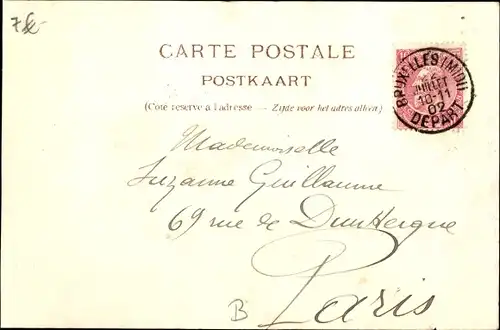 CARTE POSTALE
POSTKAART
(Côté réservé à l'adresse — Zijde voor het adres alleen)
BRUXELLES (MIDI)
JUILLET
10-11
02
DÉPART
Mademoiselle
Suzanne Guillaume
69 rue de Dunkerque
Paris
B